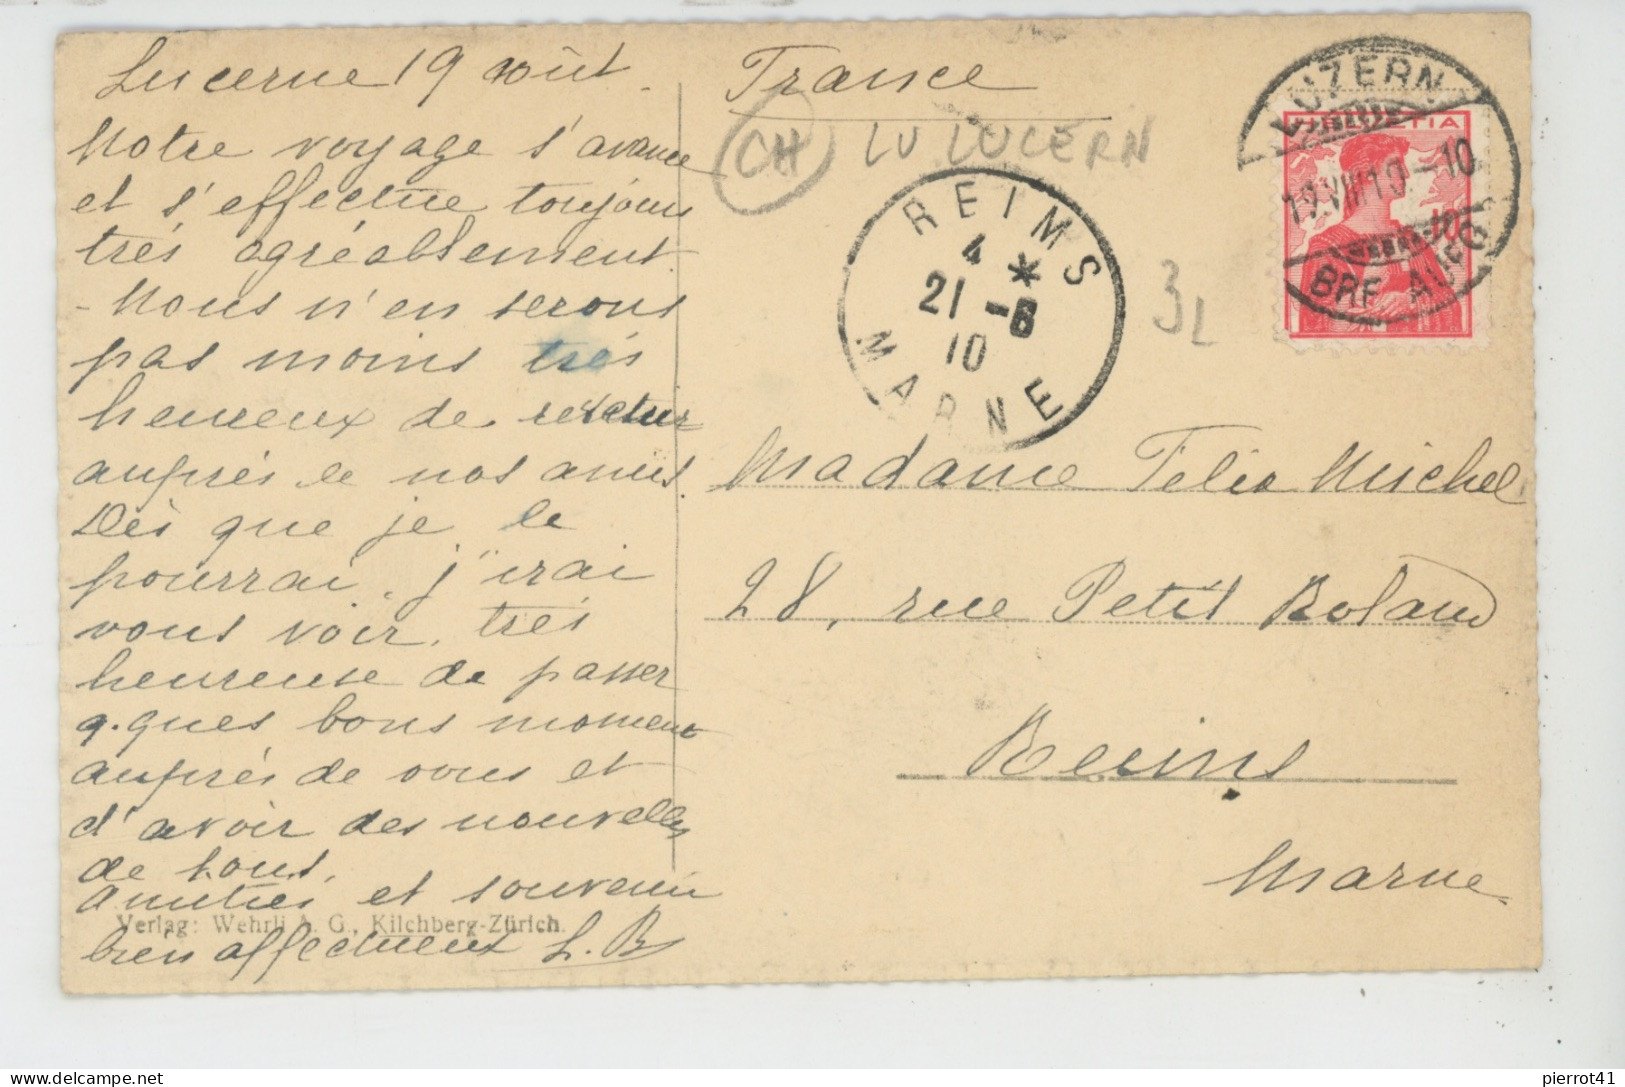 Lucerne 19 août.
Notre voyage s'avance
et s'effectue toujours
très agréablement.
- Nous n'en serons
pas moins très
heureux de
auprès de nos amis.
Dès que je le
pourrai, j'irai
vous voir, très
heureuse de passer
q.ques bons moments
auprès de vous et
d'avoir des nouvelles
de tous.
Amitiés et souvenir
bien affectueux L. B
Verlag: Wehrli A. G., Kilchberg-Zürich.
France
CH LU LUCERN
REIMS
4 *
21 -8
10
MARNE
3L
LUZERN
19.VIII.10.-10
BRF. AUFG.
HELVETIA
10
Madame Félix Michel
28, rue Petit Roland
Reims
Marne
pierrot41